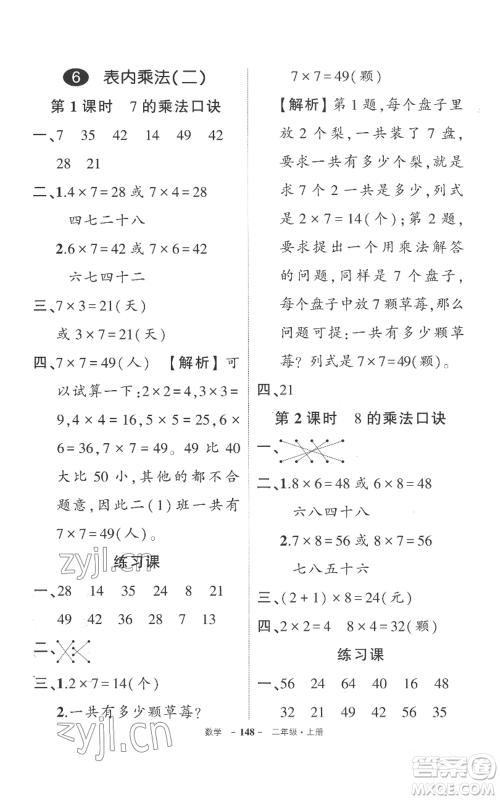 6 表内乘法(二)
第1课时 7的乘法口诀
一、7 35 42 14 49 42
28 21
二、1.4×7=28 或 7×4=28
四七二十八
2.6×7=42 或 7×6=42
六七四十二
三、7×3=21(天)
或 3×7=21(天)
四、7×7=49(人) 【解析】可
以试算一下:2×2=4,3×3=
9,4×4=16,5×5=25,6×6
=36,7×7=49。49 比 40
大又比 50 小,其他都不合
题意,因此二(1)班一共有
7×7=49(人)。
练习课
一、28 14 35 24 8 21
49 42 30 6 12 13
二、
三、1.2×7=14(个)
2.一共有多少颗草莓?
7×7=49(颗)
【解析】第 1 题,每个盘子里
放 2 个梨,一共装了 7 盘,
要求一共有多少个梨,就是
求 7 个 2 一共是多少,列式
是 2×7=14(个);第 2 题,
要求提一个用乘法解答
的问题,同样是 7 个盘子,
每个盘子中放 7 颗草莓,那么
问题可提:一共有多少颗
草莓? 列式是 7×7=49(颗)。
四、21
第2课时 8的乘法口诀
一、
二、1.8×6=48 或 6×8=48
六八四十八
2.7×8=56 或 8×7=56
七八五十六
三、(2+1)×8=24(元)
四、2×2=4 8×4=32
练习课
一、56 24 64 40 16 48
32 21 48 15 56 35
数学 - 148 - 二年级·上册
zyjl.cn
zyjl.cn
答案圈
MXQE.COM